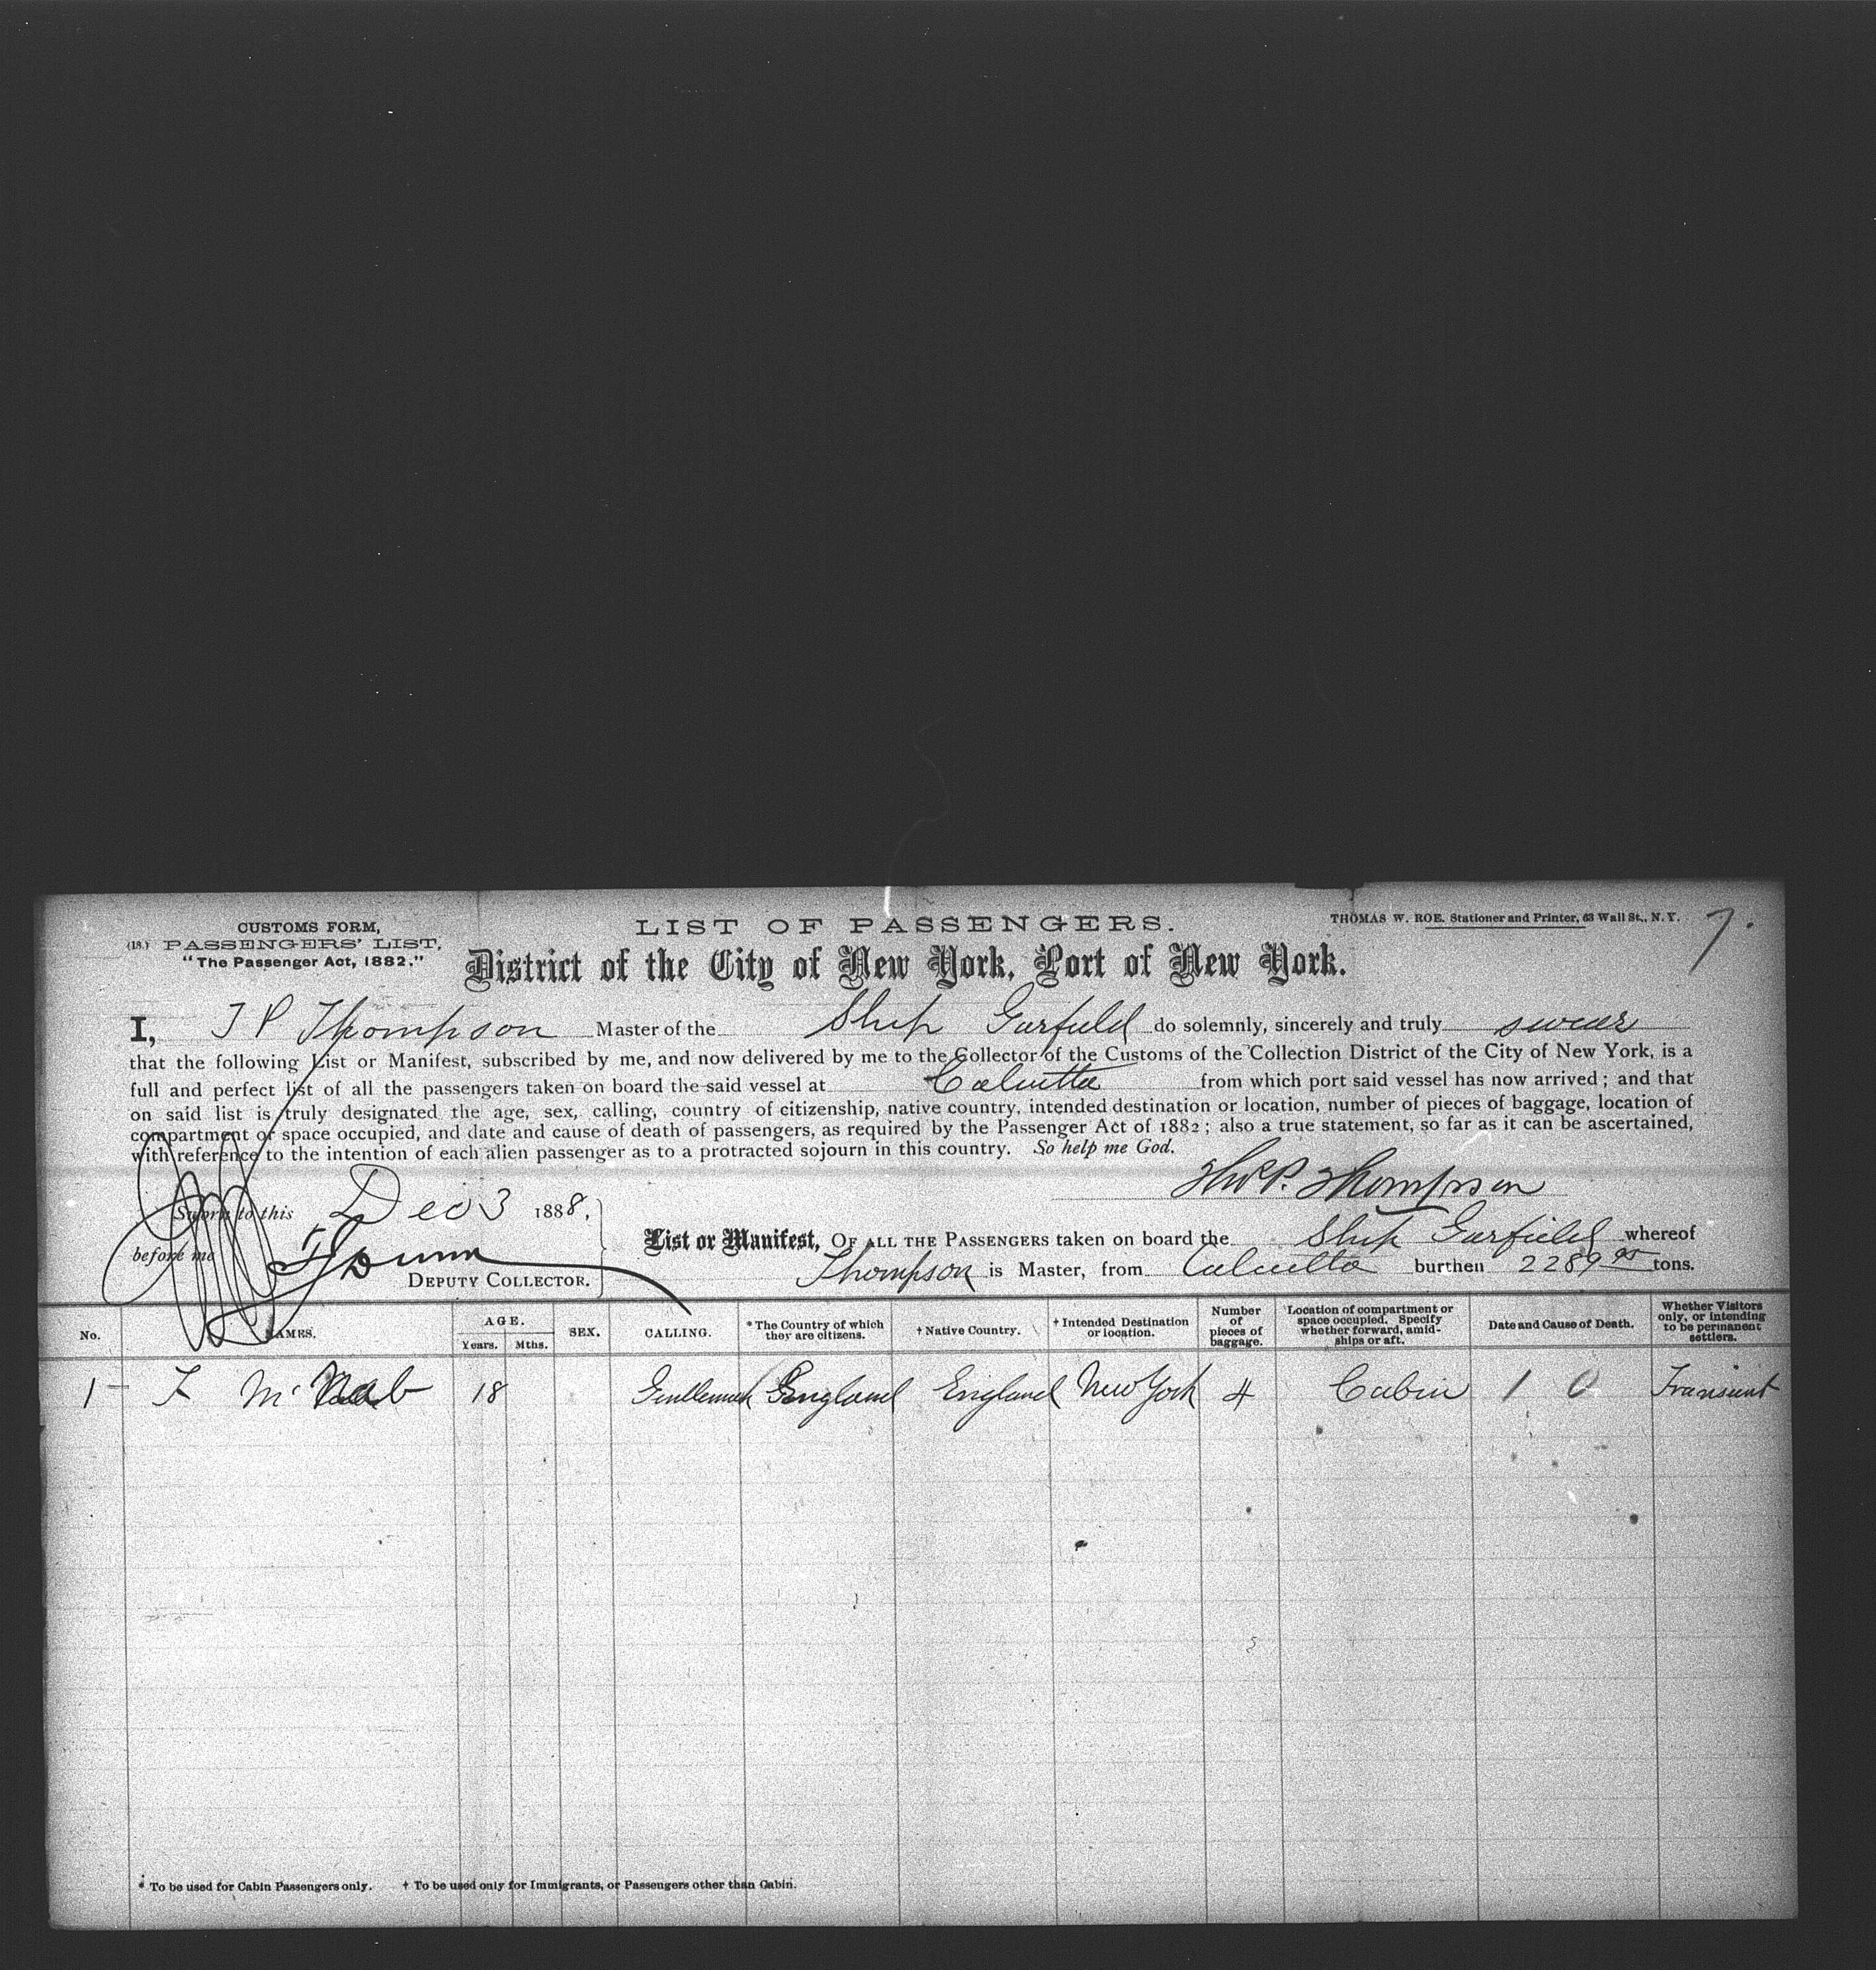 CUSTOMS FORM,
(18.) PASSENGERS' LIST,
"The Passenger Act, 1882."
LIST OF PASSENGERS.
THOMAS W. ROE. Stationer and Printer, 63 Wall St., N. Y.
7.
District of the City of New York, Port of New York.
I, T P Thompson Master of the Ship Garfield do solemnly, sincerely and truly swear
that the following List or Manifest, subscribed by me, and now delivered by me to the Collector of the Customs of the Collection District of the City of New York, is a
full and perfect list of all the passengers taken on board the said vessel at Calcutta from which port said vessel has now arrived; and that
on said list is truly designated the age, sex, calling, country of citizenship, native country, intended destination or location, number of pieces of baggage, location of
compartment or space occupied, and date and cause of death of passengers, as required by the Passenger Act of 1882; also a true statement, so far as it can be ascertained,
with reference to the intention of each alien passenger as to a protracted sojourn in this country. So help me God.
Thos P. Thompson
Sworn to this Dec 3 1888,
before me
DEPUTY COLLECTOR.
List or Manifest, OF ALL THE PASSENGERS taken on board the Ship Garfield whereof
Thompson is Master, from Calcutta burthen 2289 95 tons.
No. NAMES. AGE. Years. Mths. SEX. CALLING. * The Country of which they are citizens. † Native Country. † Intended Destination or location. Number of pieces of baggage. Location of compartment or space occupied. Specify whether forward, amidships or aft. Date and Cause of Death. Whether Visitors only, or intending to be permanent settlers.
1 F McNab 18 Gentleman England England New York 4 Cabin 1 0 Transient
* To be used for Cabin Passengers only. † To be used only for Immigrants, or Passengers other than Cabin.